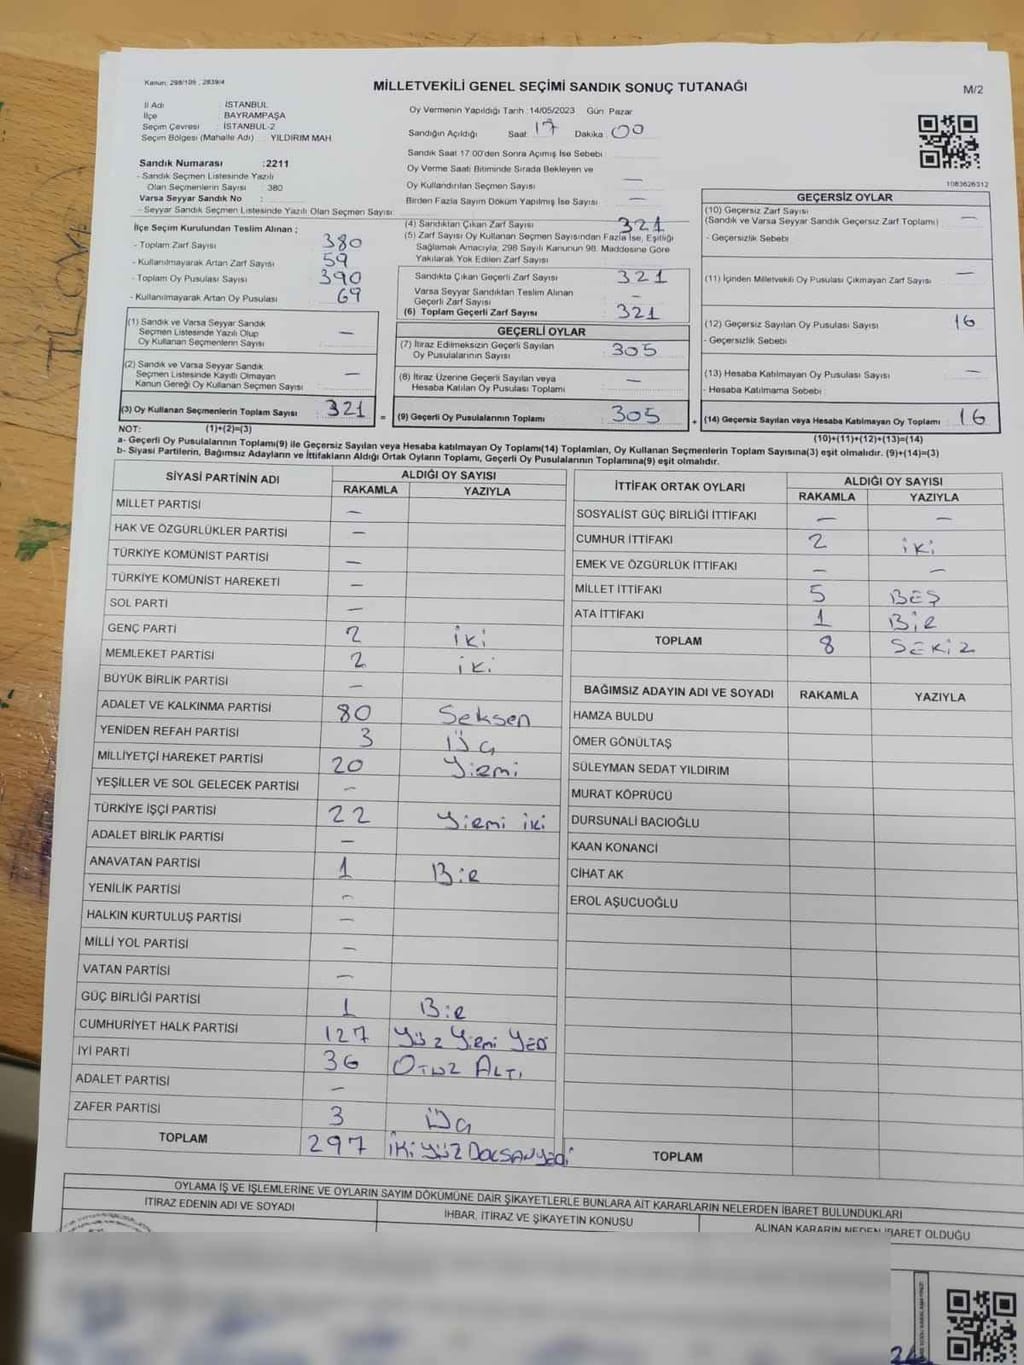 Kanun: 298/105 , 2839/4
MİLLETVEKİLİ GENEL SEÇİMİ SANDIK SONUÇ TUTANAĞI
M/2
İl Adı : İSTANBUL
İlçe : BAYRAMPAŞA
Seçim Çevresi : İSTANBUL-2
Seçim Bölgesi (Mahalle Adı) : YILDIRIM MAH
Oy Vermenin Yapıldığı Tarih :14/05/2023 Gün: Pazar
Sandığın Açıldığı Saat: 17 Dakika: 00
Sandık Saat 17:00'den Sonra Açımış İse Sebebi :
Oy Verme Saati Bitiminde Sırada Bekleyen ve
Oy Kullandırılan Seçmen Sayısı —
Birden Fazla Sayım Döküm Yapılmış İse Sayısı —
Sandık Numarası :2211
- Sandık Seçmen Listesinde Yazılı
Olan Seçmenlerin Sayısı : 380
Varsa Seyyar Sandık No :
- Seyyar Sandık Seçmen Listesinde Yazılı Olan Seçmen Sayısı:
1083626312
İlçe Seçim Kurulundan Teslim Alınan ;
- Toplam Zarf Sayısı 380
- Kullanılmayarak Artan Zarf Sayısı 59
- Toplam Oy Pusulası Sayısı 390
- Kullanılmayarak Artan Oy Pusulası 69
(1) Sandık ve Varsa Seyyar Sandık
Seçmen Listesinde Yazılı Olup
Oy Kullanan Seçmenlerin Sayısı —
(2) Sandık ve Varsa Seyyar Sandık
Seçmen Listesinde Kayıtlı Olmayan
Kanun Gereği Oy Kullanan Seçmen Sayısı —
(3) Oy Kullanan Seçmenlerin Toplam Sayısı 321 =
(4) Sandıktan Çıkan Zarf Sayısı 321
(5) Zarf Sayısı Oy Kullanan Seçmen Sayısından Fazla İse, Eşitliği
Sağlamak Amacıyla, 298 Sayılı Kanunun 98. Maddesine Göre
Yakılarak Yok Edilen Zarf Sayısı
Sandıkta Çıkan Geçerli Zarf Sayısı 321
Varsa Seyyar Sandıktan Teslim Alınan
Geçerli Zarf Sayısı —
(6) Toplam Geçerli Zarf Sayısı 321
GEÇERLİ OYLAR
(7) İtiraz Edilmeksizin Geçerli Sayılan
Oy Pusulalarının Sayısı 305
(8) İtiraz Üzerine Geçerli Sayılan veya
Hesaba Katılan Oy Pusulası Toplamı —
(9) Geçerli Oy Pusulalarının Toplamı 305 +
GEÇERSİZ OYLAR
(10) Geçersiz Zarf Sayısı
(Sandık ve Varsa Seyyar Sandık Geçersiz Zarf Toplamı) —
- Geçersizlik Sebebi
(11) İçinden Milletvekili Oy Pusulası Çıkmayan Zarf Sayısı —
(12) Geçersiz Sayılan Oy Pusulası Sayısı 16
- Geçersizlik Sebebi
(13) Hesaba Katılmayan Oy Pusulası Sayısı —
- Hesaba Katılmama Sebebi
(14) Geçersiz Sayılan veya Hesaba Katılmayan Oy Toplamı 16
NOT: (1)+(2)=(3)
(10)+(11)+(12)+(13)=(14)
a- Geçerli Oy Pusulalarının Toplamı(9) ile Geçersiz Sayılan veya Hesaba katılmayan Oy Toplamı(14) Toplamları, Oy Kullanan Seçmenlerin Toplam Sayısına(3) eşit olmalıdır. (9)+(14)=(3)
b- Siyasi Partilerin, Bağımsız Adayların ve İttifakların Aldığı Ortak Oyların Toplamı, Geçerli Oy Pusulalarının Toplamına(9) eşit olmalıdır.
SİYASİ PARTİNİN ADI ALDIĞI OY SAYISI
RAKAMLA YAZIYLA
MİLLET PARTİSİ —
HAK VE ÖZGÜRLÜKLER PARTİSİ —
TÜRKİYE KOMÜNİST PARTİSİ —
TÜRKİYE KOMÜNİST HAREKETİ —
SOL PARTİ —
GENÇ PARTİ 2 iki
MEMLEKET PARTİSİ 2 iki
BÜYÜK BİRLİK PARTİSİ —
ADALET VE KALKINMA PARTİSİ 80 Seksen
YENİDEN REFAH PARTİSİ 3 Üç
MİLLİYETÇİ HAREKET PARTİSİ 20 Yirmi
YEŞİLLER VE SOL GELECEK PARTİSİ —
TÜRKİYE İŞÇİ PARTİSİ 22 Yirmi iki
ADALET BİRLİK PARTİSİ —
ANAVATAN PARTİSİ 1 Bir
YENİLİK PARTİSİ —
HALKIN KURTULUŞ PARTİSİ —
MİLLİ YOL PARTİSİ —
VATAN PARTİSİ —
GÜÇ BİRLİĞİ PARTİSİ 1 Bir
CUMHURİYET HALK PARTİSİ 127 Yüz Yirmi Yedi
İYİ PARTİ 36 Otuz Altı
ADALET PARTİSİ —
ZAFER PARTİSİ 3 Üç
TOPLAM 297 İki Yüz Doksan yedi
İTTİFAK ORTAK OYLARI ALDIĞI OY SAYISI
RAKAMLA YAZIYLA
SOSYALİST GÜÇ BİRLİĞİ İTTİFAKI — —
CUMHUR İTTİFAKI 2 iki
EMEK VE ÖZGÜRLÜK İTTİFAKI — —
MİLLET İTTİFAKI 5 BEŞ
ATA İTTİFAKI 1 Bir
TOPLAM 8 SEKİZ
BAĞIMSIZ ADAYIN ADI VE SOYADI RAKAMLA YAZIYLA
HAMZA BULDU
ÖMER GÖNÜLTAŞ
SÜLEYMAN SEDAT YILDIRIM
MURAT KÖPRÜCÜ
DURSUNALİ BACIOĞLU
KAAN KONANCI
CİHAT AK
EROL AŞUCUOĞLU
TOPLAM
OYLAMA İŞ VE İŞLEMLERİNE VE OYLARIN SAYIM DÖKÜMÜNE DAİR ŞİKAYETLERLE BUNLARA AİT KARARLARIN NELERDEN İBARET BULUNDUKLARI
İTİRAZ EDENİN ADI VE SOYADI İHBAR, İTİRAZ VE ŞİKAYETİN KONUSU ALINAN KARARIN NEDEN İBARET OLDUĞU